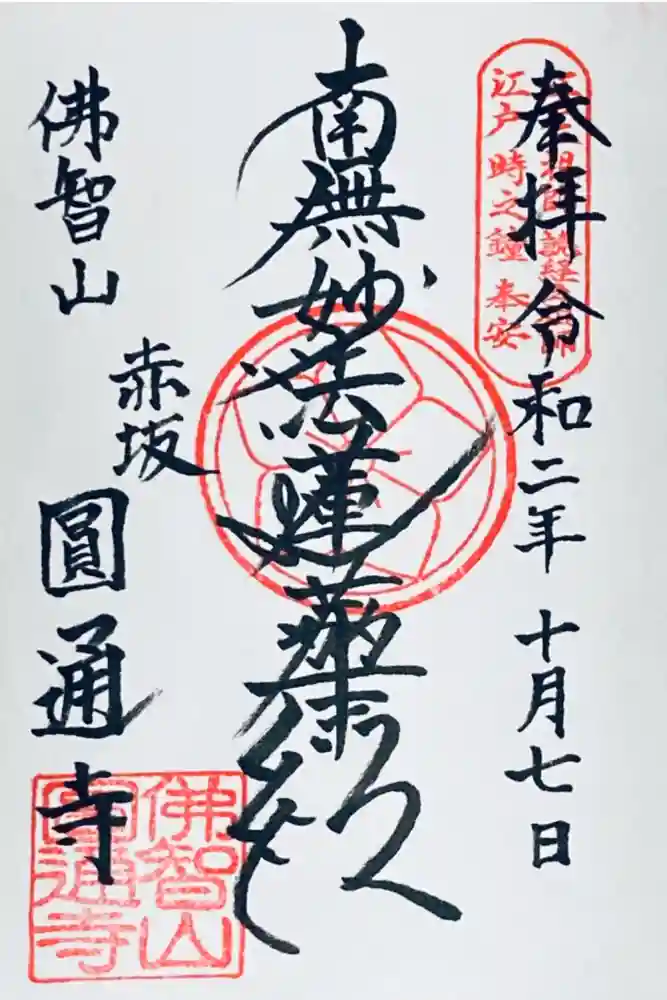 奉拝 令和二年 十月七日
江戸時之鐘 奉安
南無妙法蓮華経
佛智山
赤坂
圓通寺
佛智山
圓通寺